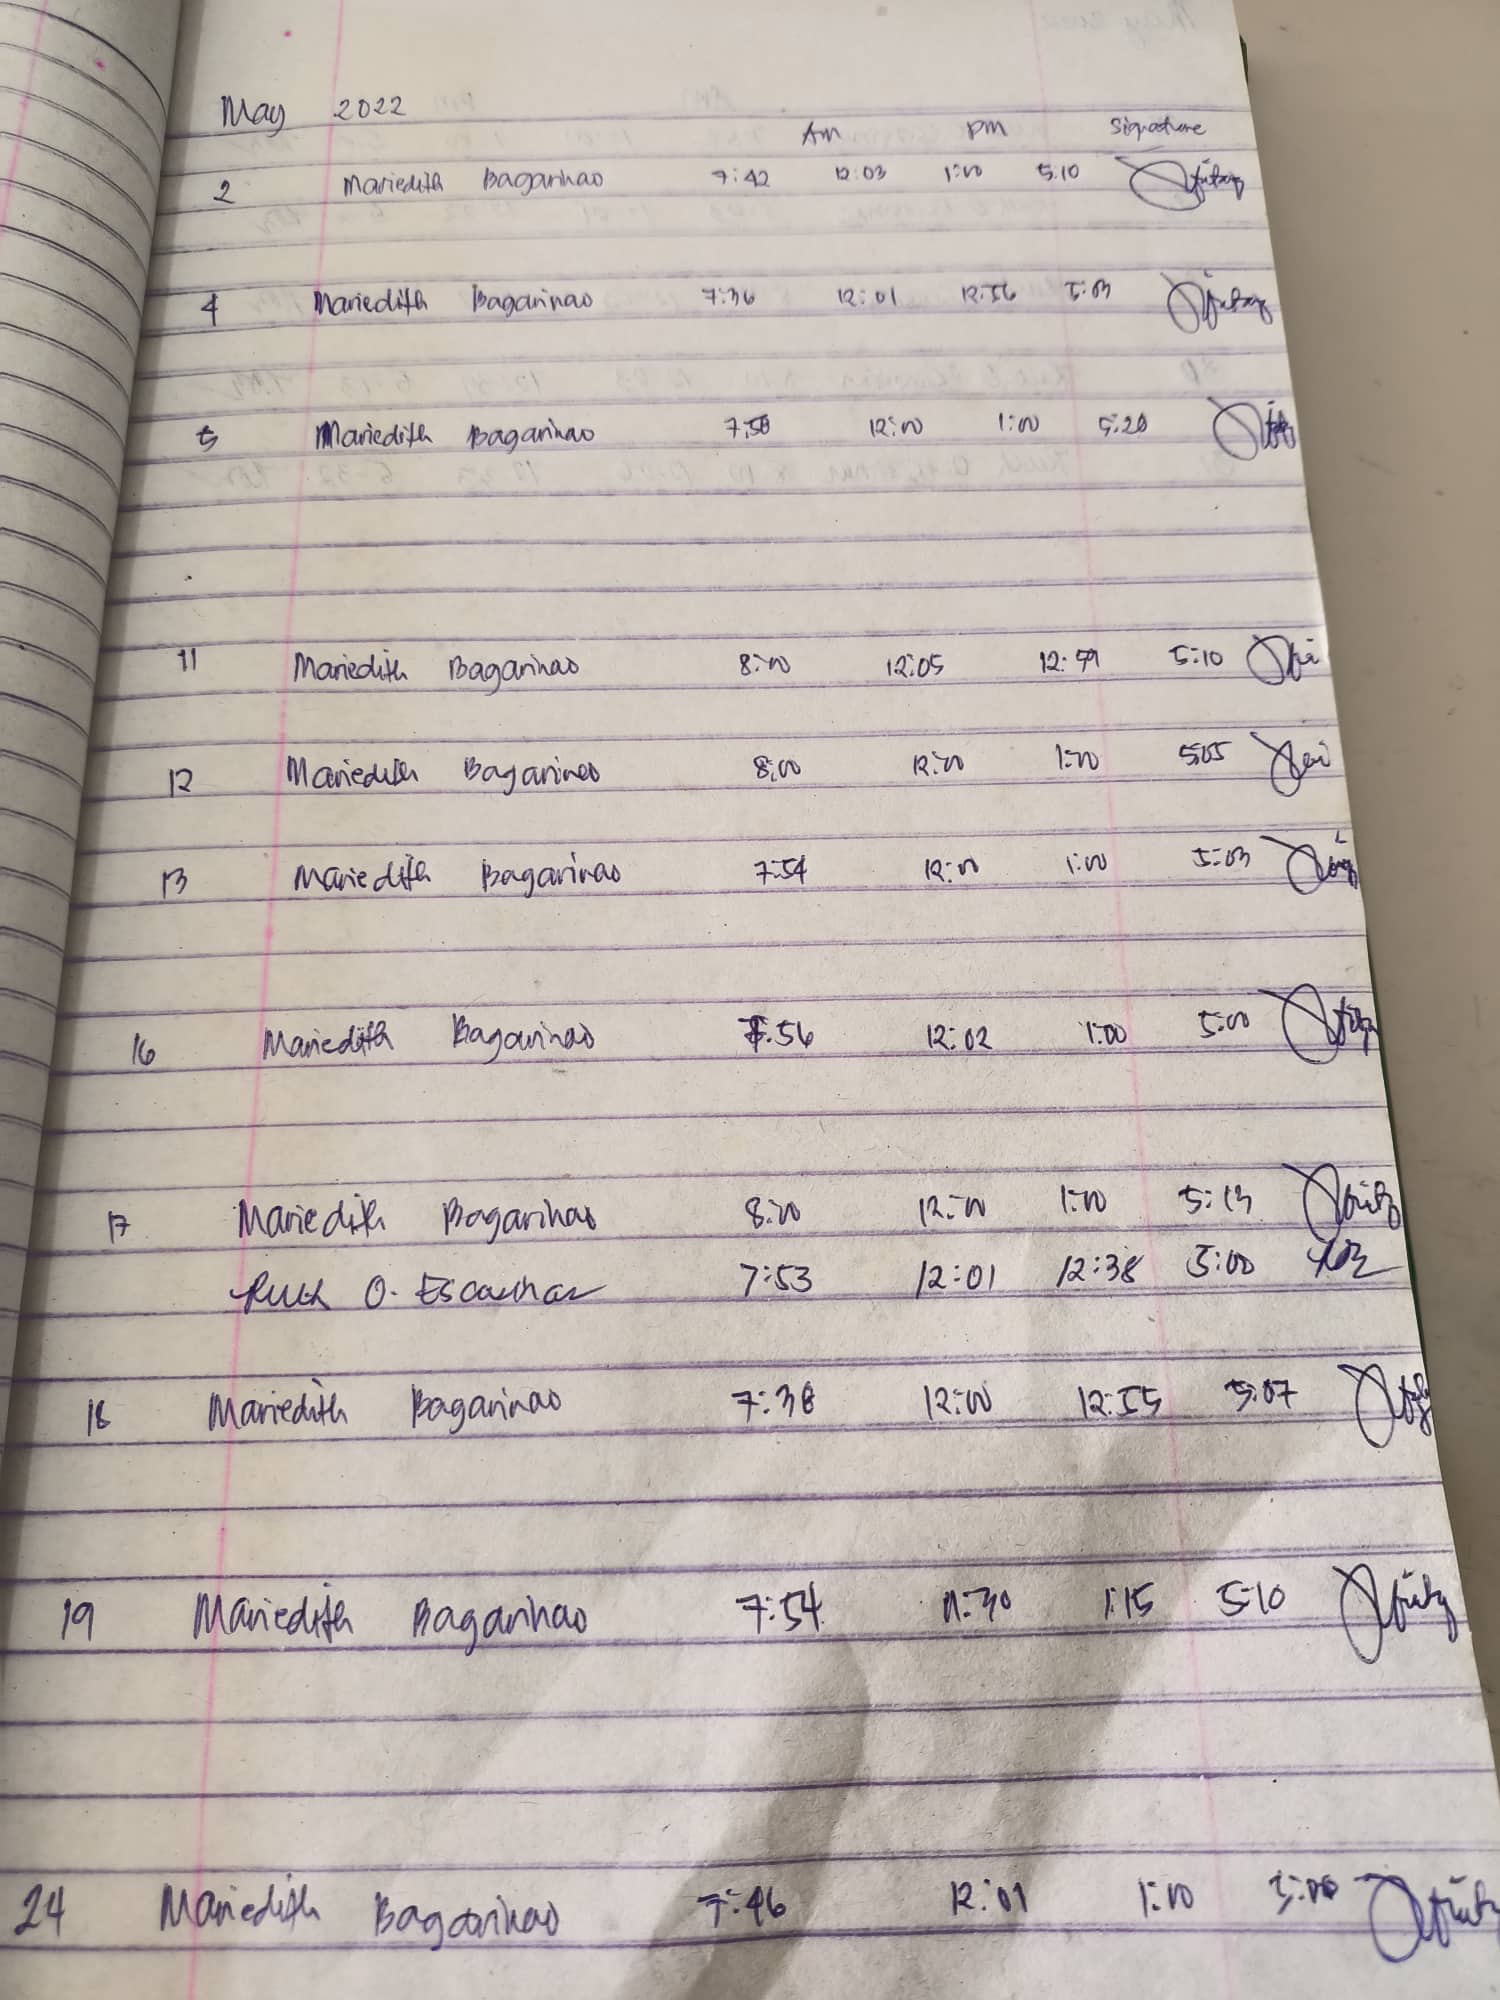 May 2022
AM PM Signature
2 Mariedith Bagarinao 7:42 12:03 1:00 5:10
4 Mariedith Bagarinao 7:36 12:01 12:56 5:03
5 Mariedith Bagarinao 7:58 12:00 1:00 5:20
11 Mariedith Bagarinao 8:00 12:05 12:59 5:10
12 Mariedith Bagarinao 8:00 12:00 1:00 5:05
13 Mariedith Bagarinao 7:54 12:00 1:00 5:03
16 Mariedith Bagarinao 7:56 12:02 1:00 5:00
17 Mariedith Bagarinao 8:00 12:00 1:00 5:13
Ruth O. 7:53 12:01 12:38 5:00
18 Mariedith Bagarinao 7:38 12:00 12:55 5:07
19 Mariedith Bagarinao 7:54 11:30 1:15 5:10
24 Mariedith Bagarinao 7:46 12:01 1:00 5:00